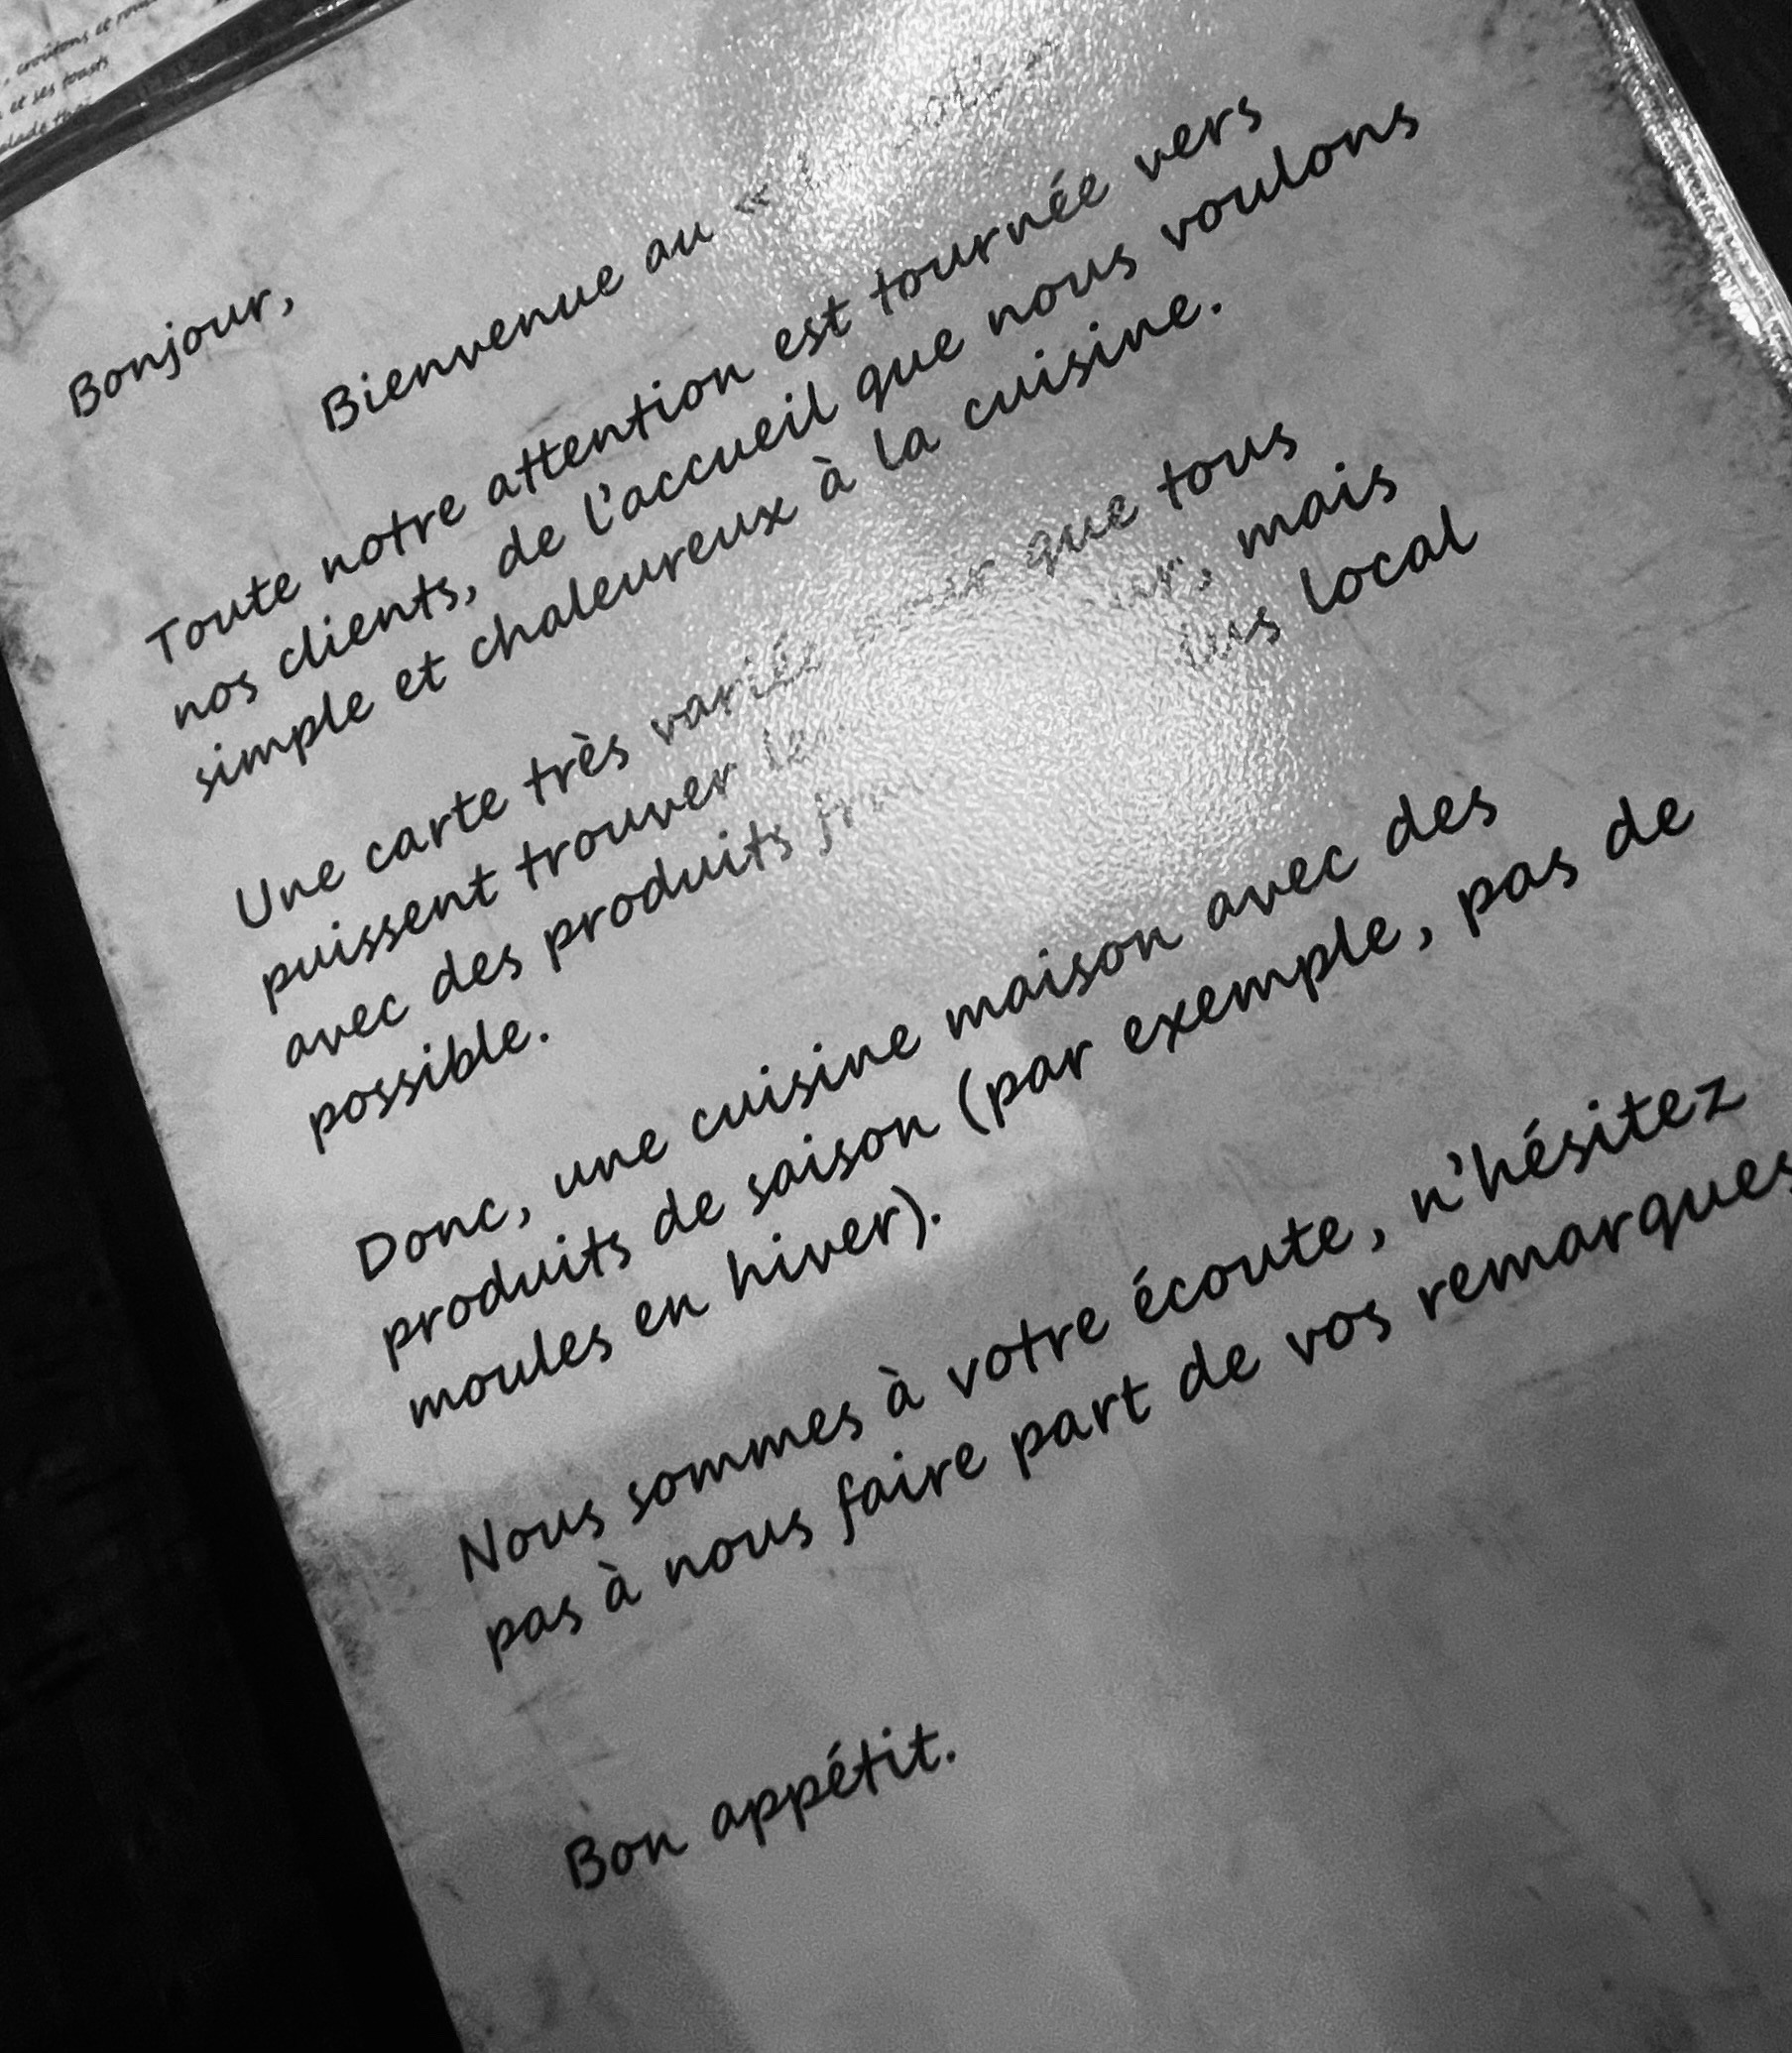 croûtons et
et ses toasts
Bonjour,
Bienvenue au «
Toute notre attention est tournée vers
nos clients, de l'accueil que nous voulons
simple et chaleureux à la cuisine.
Une carte très variée pour que tous
puissent trouver mais
avec des produits local
possible.
Donc, une cuisine maison avec des
produits de saison (par exemple, pas de
moules en hiver).
Nous sommes à votre écoute, n'hésitez
pas à nous faire part de vos remarques
Bon appétit.